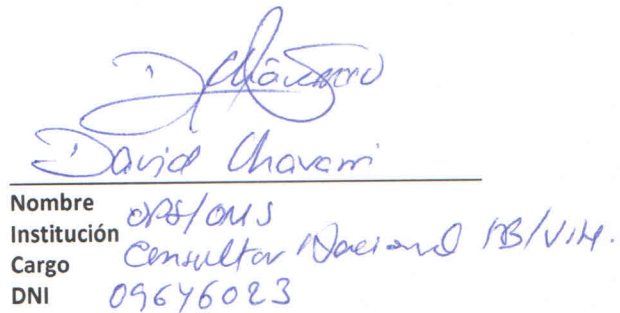 David Chavarri
Nombre
Institución OPS/OMS
Cargo Consultor Nacional TB/VIH.
DNI 09646023